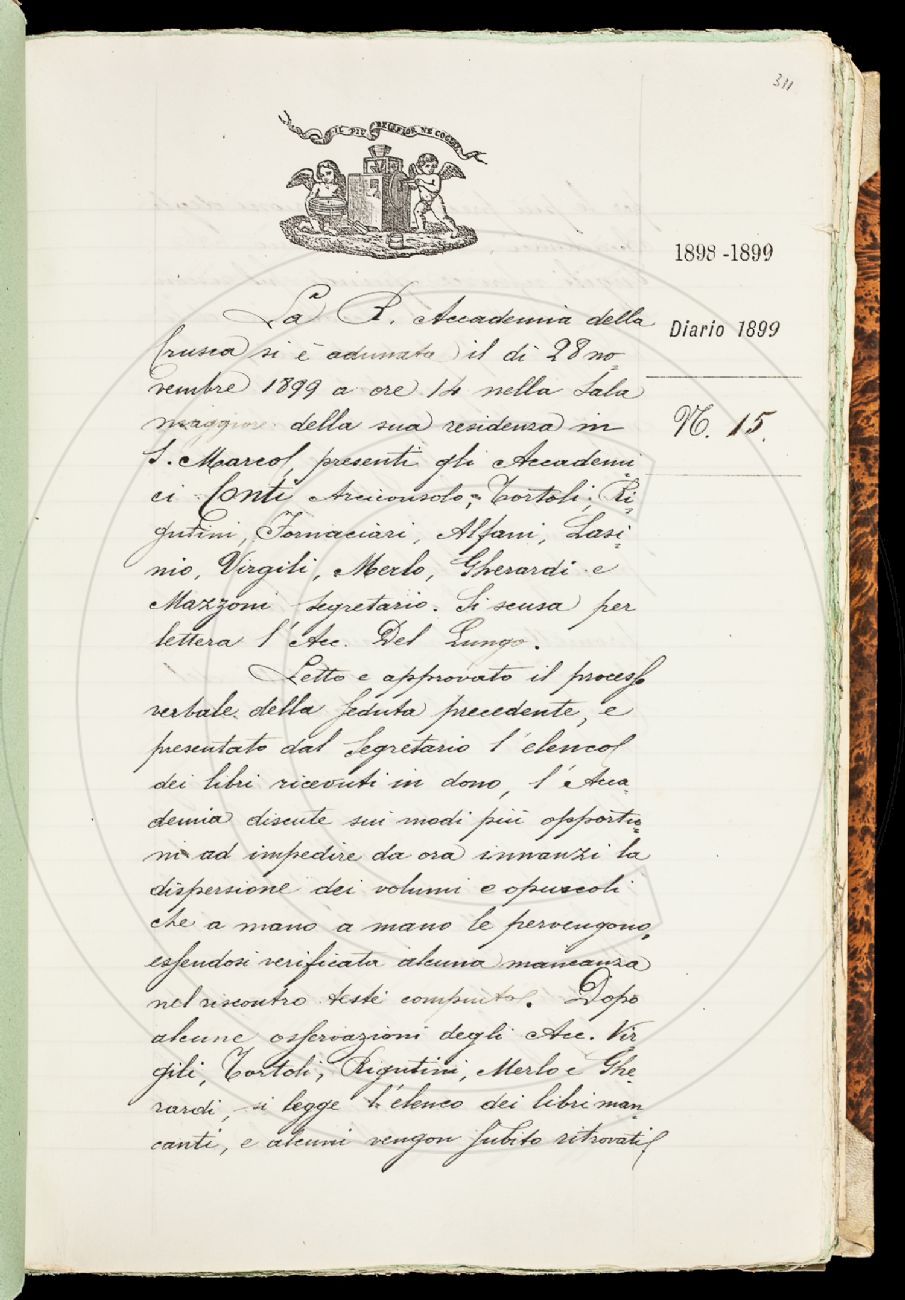 311
IL PIÙ BEL FIOR NE COGLIE
1898-1899
Diario 1899
N. 15.
La R. Accademia della
Crusca si è adunata il dì 28 no=
vembre 1899 a ore 14 nella Sala
maggiore della sua residenza in
S. Marco, presenti gli Accademi=
ci Conti Arciconsolo, Tortoli, Ri=
gutini, Fornaciari, Alfani, Lasi=
nio, Virgili, Merlo, Gherardi e
Mazzoni Segretario. Si scusa per
lettera l'Acc. Del Lungo.
Letto e approvato il processo
verbale della seduta precedente, e
presentato dal Segretario l'elenco
dei libri ricevuti in dono, l'Acca=
demia discute sui modi più opportu=
ni ad impedire da ora innanzi la
dispersione dei volumi e opuscoli
che a mano a mano le pervengono,
essendosi verificata alcuna mancanza
nel riscontro testè compiuto. Dopo
alcune osservazioni degli Acc. Vir
gili, Tortoli, Rigutini, Merlo e Ghe=
rardi, si legge l'elenco dei libri man=
canti, e alcuni vengon subito ritrovati